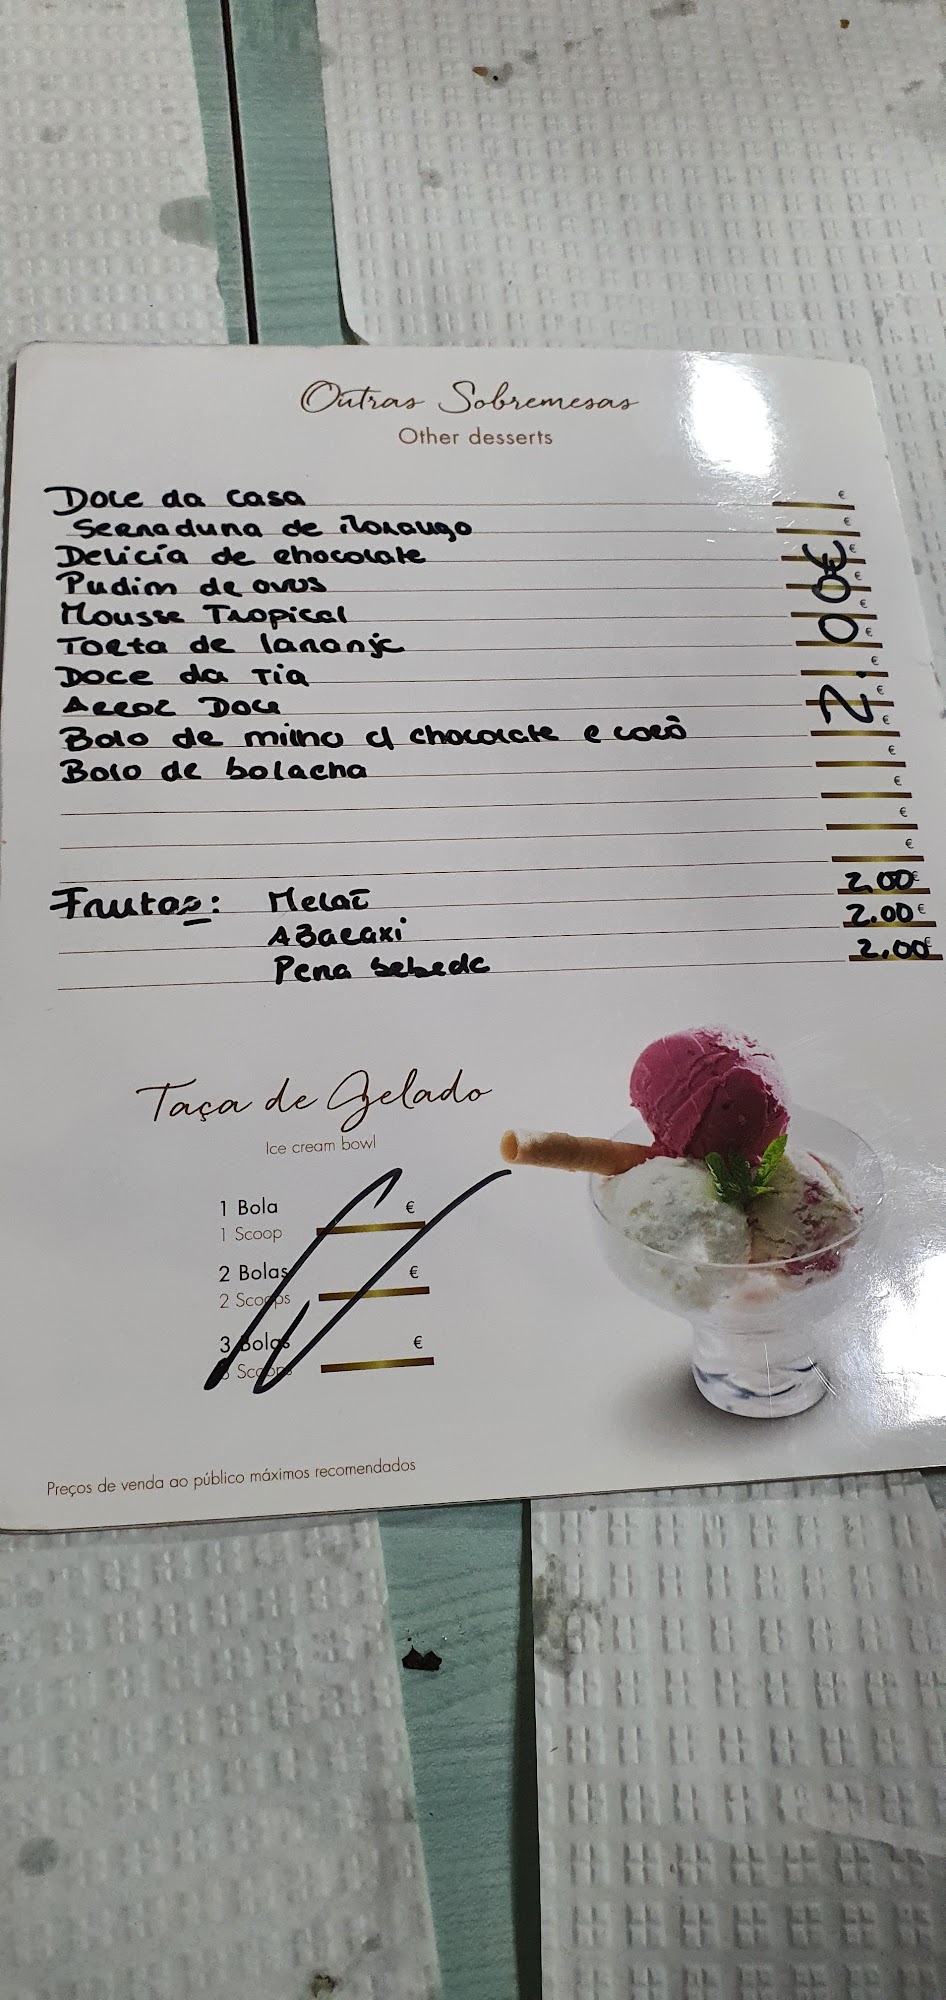 Outras Sobremesas
Other desserts
Doce da casa €
Serraduna de morango €
Delicia de chocolate €
Pudim de ovos €
Mousse Tropical €
Torta de laranja €
Doce da Tia €
Arroz Doce €
Bolo de milho c/ chocolate e cocô €
Bolo de bolacha €
2.00€
€
€
€
Frutas: Melaõ 2,00€
ABacaxi 2.00€
Pera bebeda 2,00€
Taça de Gelado
Ice cream bowl
1 Bola €
1 Scoop
2 Bolas €
2 Scoops
3 Bolas €
3 Scoops
Preços de venda ao público máximos recomendados